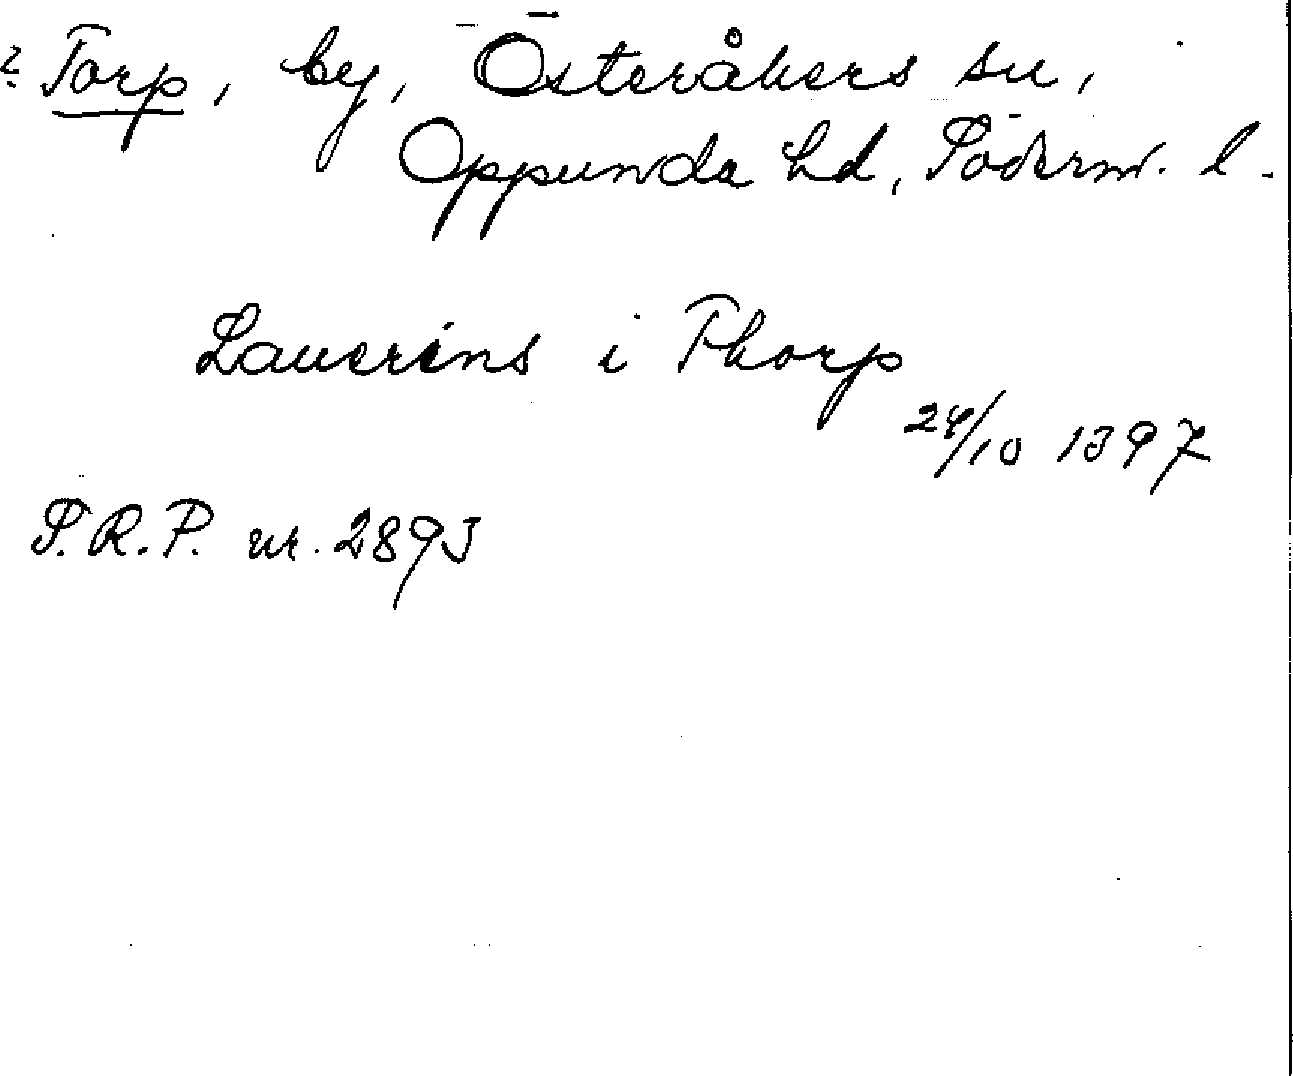 ? Torp, by, Österåkers sn,
Oppunda hd, Söderm. l.
Laurens i Thorp
24/10 1397
S.R.P. nr. 2893